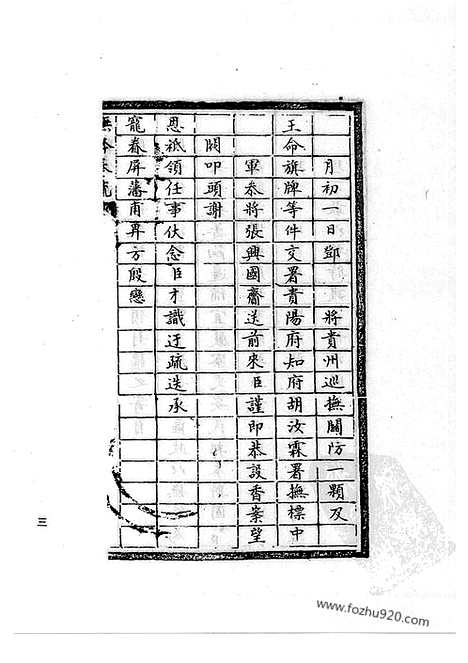 月初一日鄧　將貴州巡撫關防一顆及
王命旗牌等件交署貴陽府知府胡汝霖署撫標中
軍參將張興國齎送前來臣謹即恭設香案望
闕叩頭謝
恩祇領任事伏念臣才識迂疏迭承
寵眷屏藩甫昇方殷戀
三
www.fozhu920.com